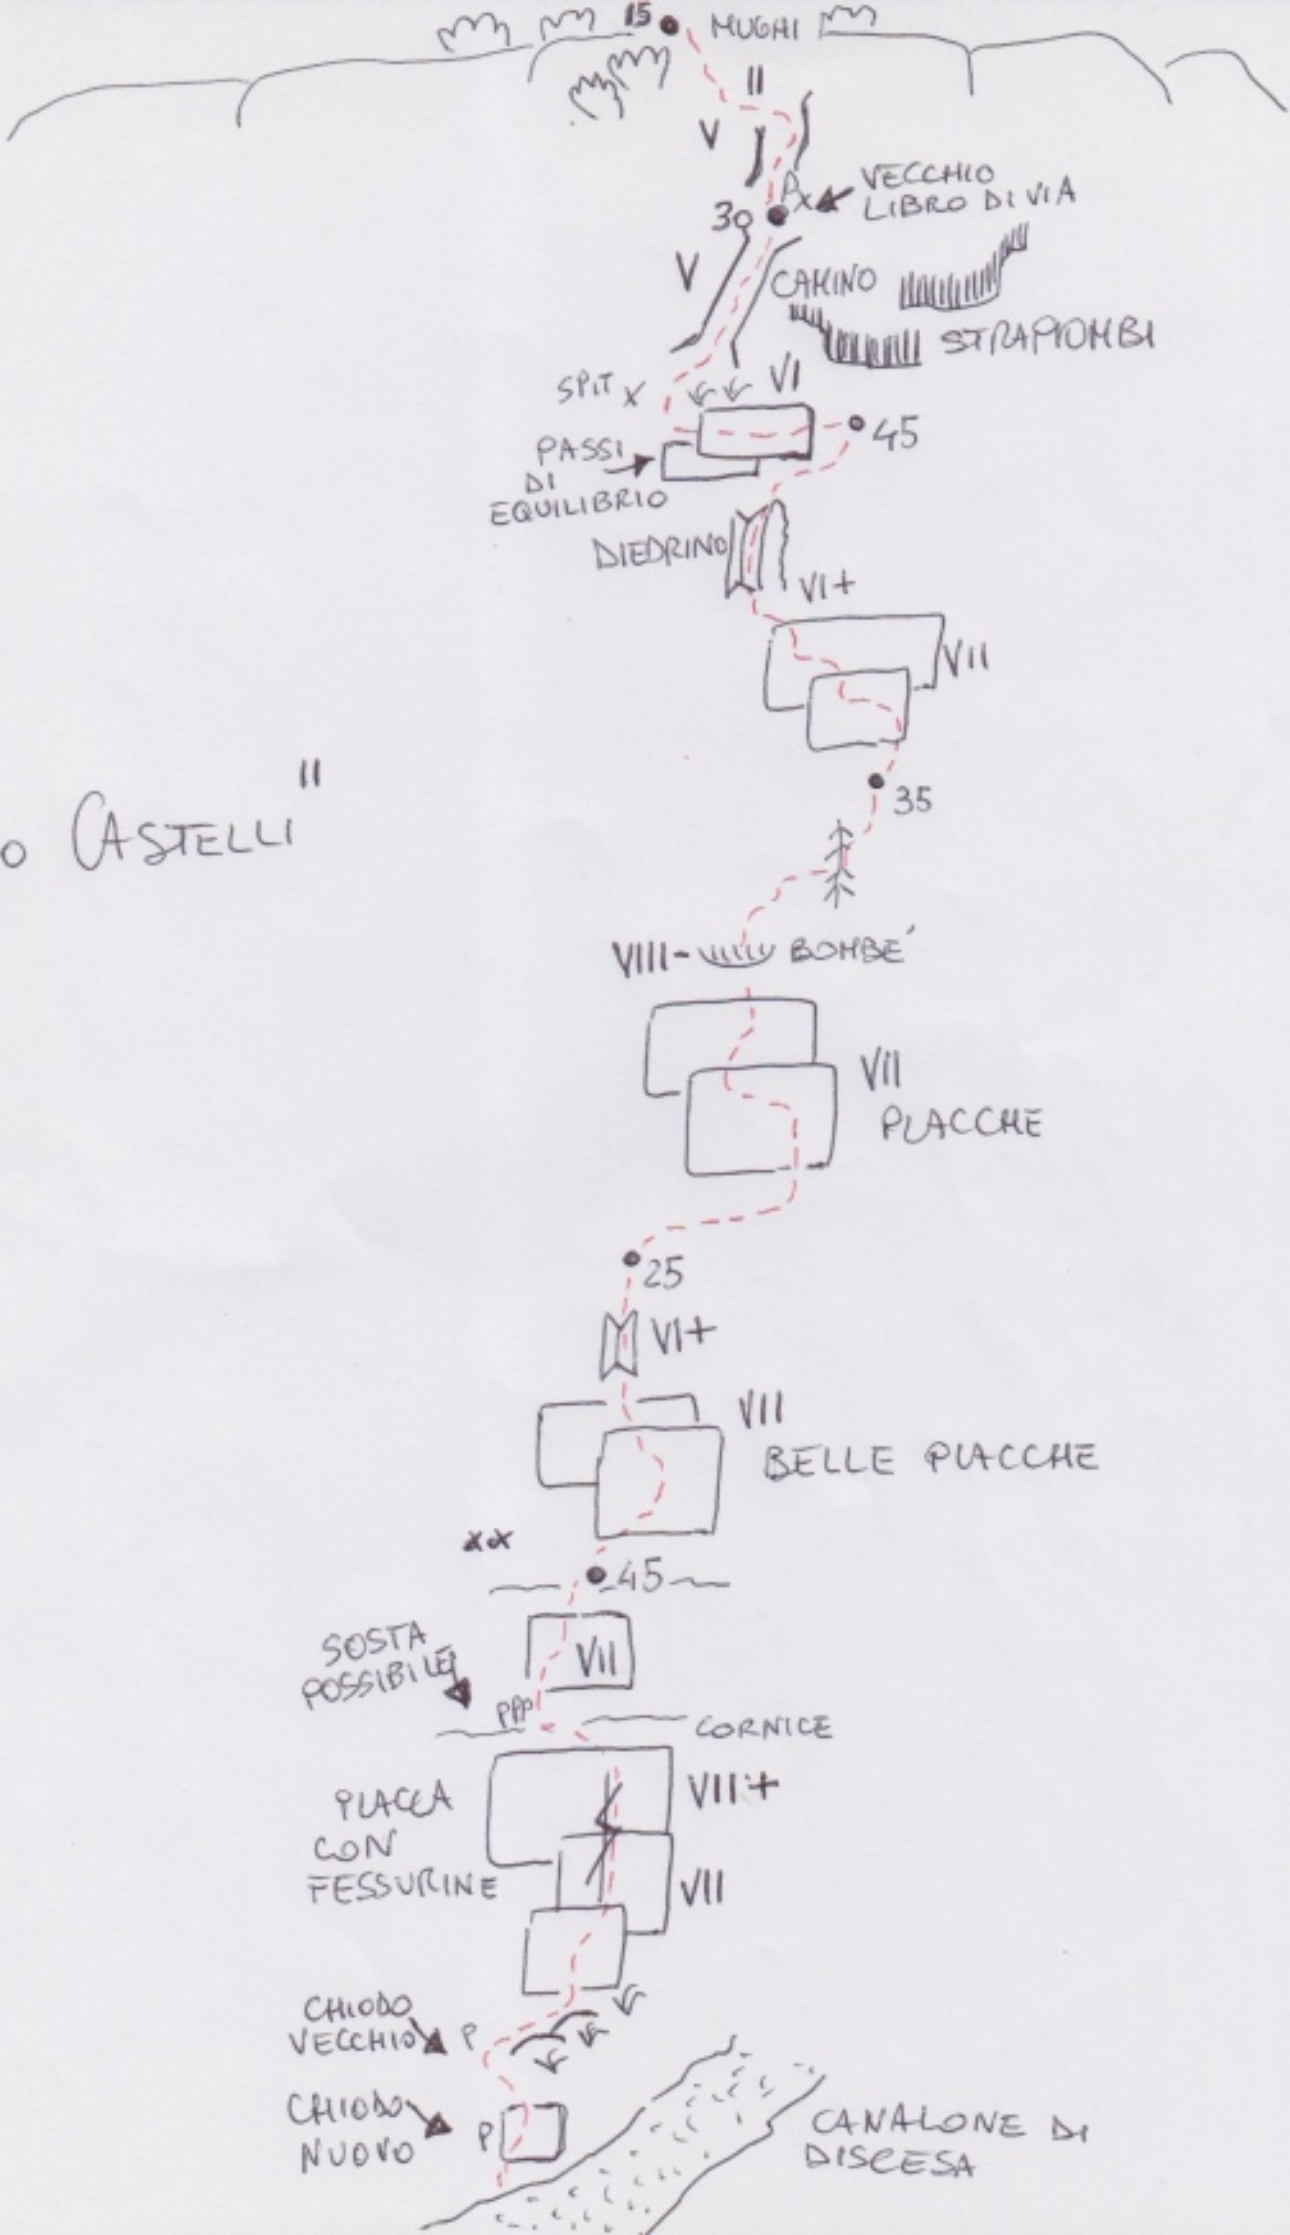 15 MUGHI
II
V
VECCHIO
LIBRO DI VIA
30
V
CAMINO
STRAPIOMBI
SPIT x
VI
45
PASSI
DI
EQUILIBRIO
DIEDRINO
VI+
VII
35
O CASTELLI"
VIII- BOMBE'
VII
PLACCHE
25
VI+
VII
BELLE PLACCHE
xx
45
SOSTA
POSSIBILE
VII
PPP
CORNICE
PLACCA
CON
FESSURINE
VII+
VII
CHIODO
VECCHIO P
CHIODO
NUOVO P
CANALONE DI
DISCESA